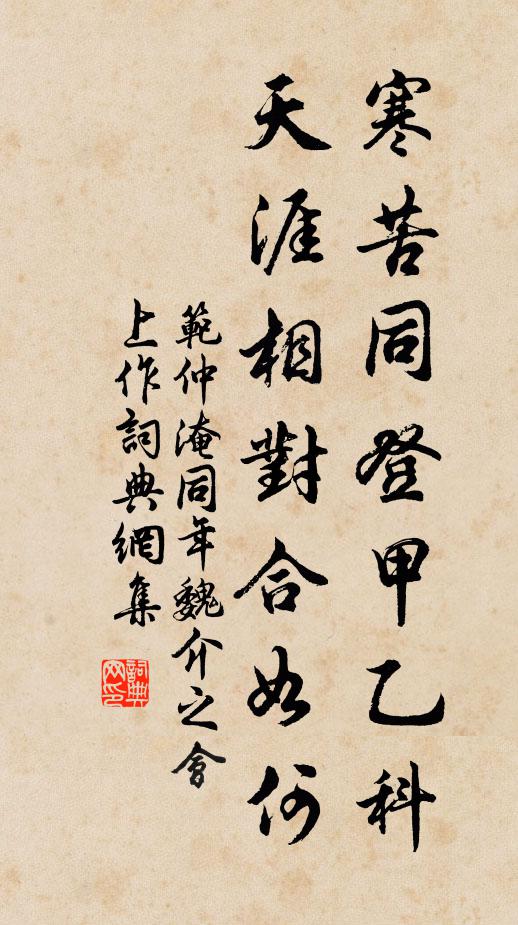 寒苦同登甲乙科
天涯相對合如何
範仲淹同年魏介之會
上作詞典網集
詞典
网印